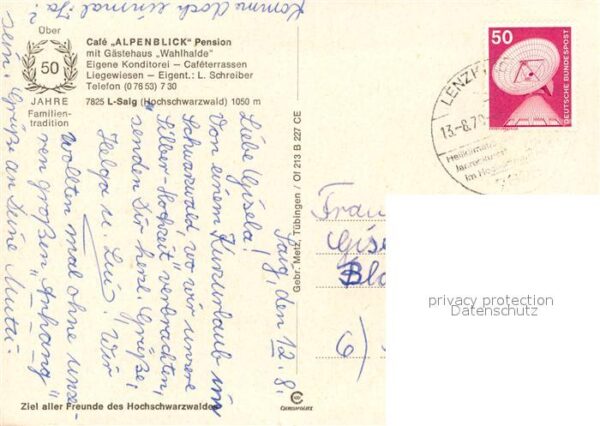 Über
50
JAHRE
Familien-
tradition
Café „ALPENBLICK" Pension
mit Gästehaus „Wahlhalde"
Eigene Konditorei – Caféterrassen
Liegewiesen – Eigent.: L. Schreiber
Telefon (0 76 53) 7 30
7825 L-Saig (Hochschwarzwald) 1050 m
Saig, den 12.8.
Liebe Gisela!
Von einem Kurzurlaub im
Schwarzwald, wo wir unsere
"Silber-Hochzeit" verbrachten,
senden Dir herzl. Grüße,
Helga u. Wir
wollten mal ohne unse-
ren großen "Anhang"
sein. Grüße an Deine Mutti.
Komme doch einmal ja?
Ziel aller Freunde des Hochschwarzwaldes
Gebr. Metz, Tübingen / Of 213 B 227 CE
50
DEUTSCHE BUNDESPOST
LENZK
13.-8.7
Heilklimati
im Ho
Frau
Gise
Blo
6)
privacy protection
Datenschutz